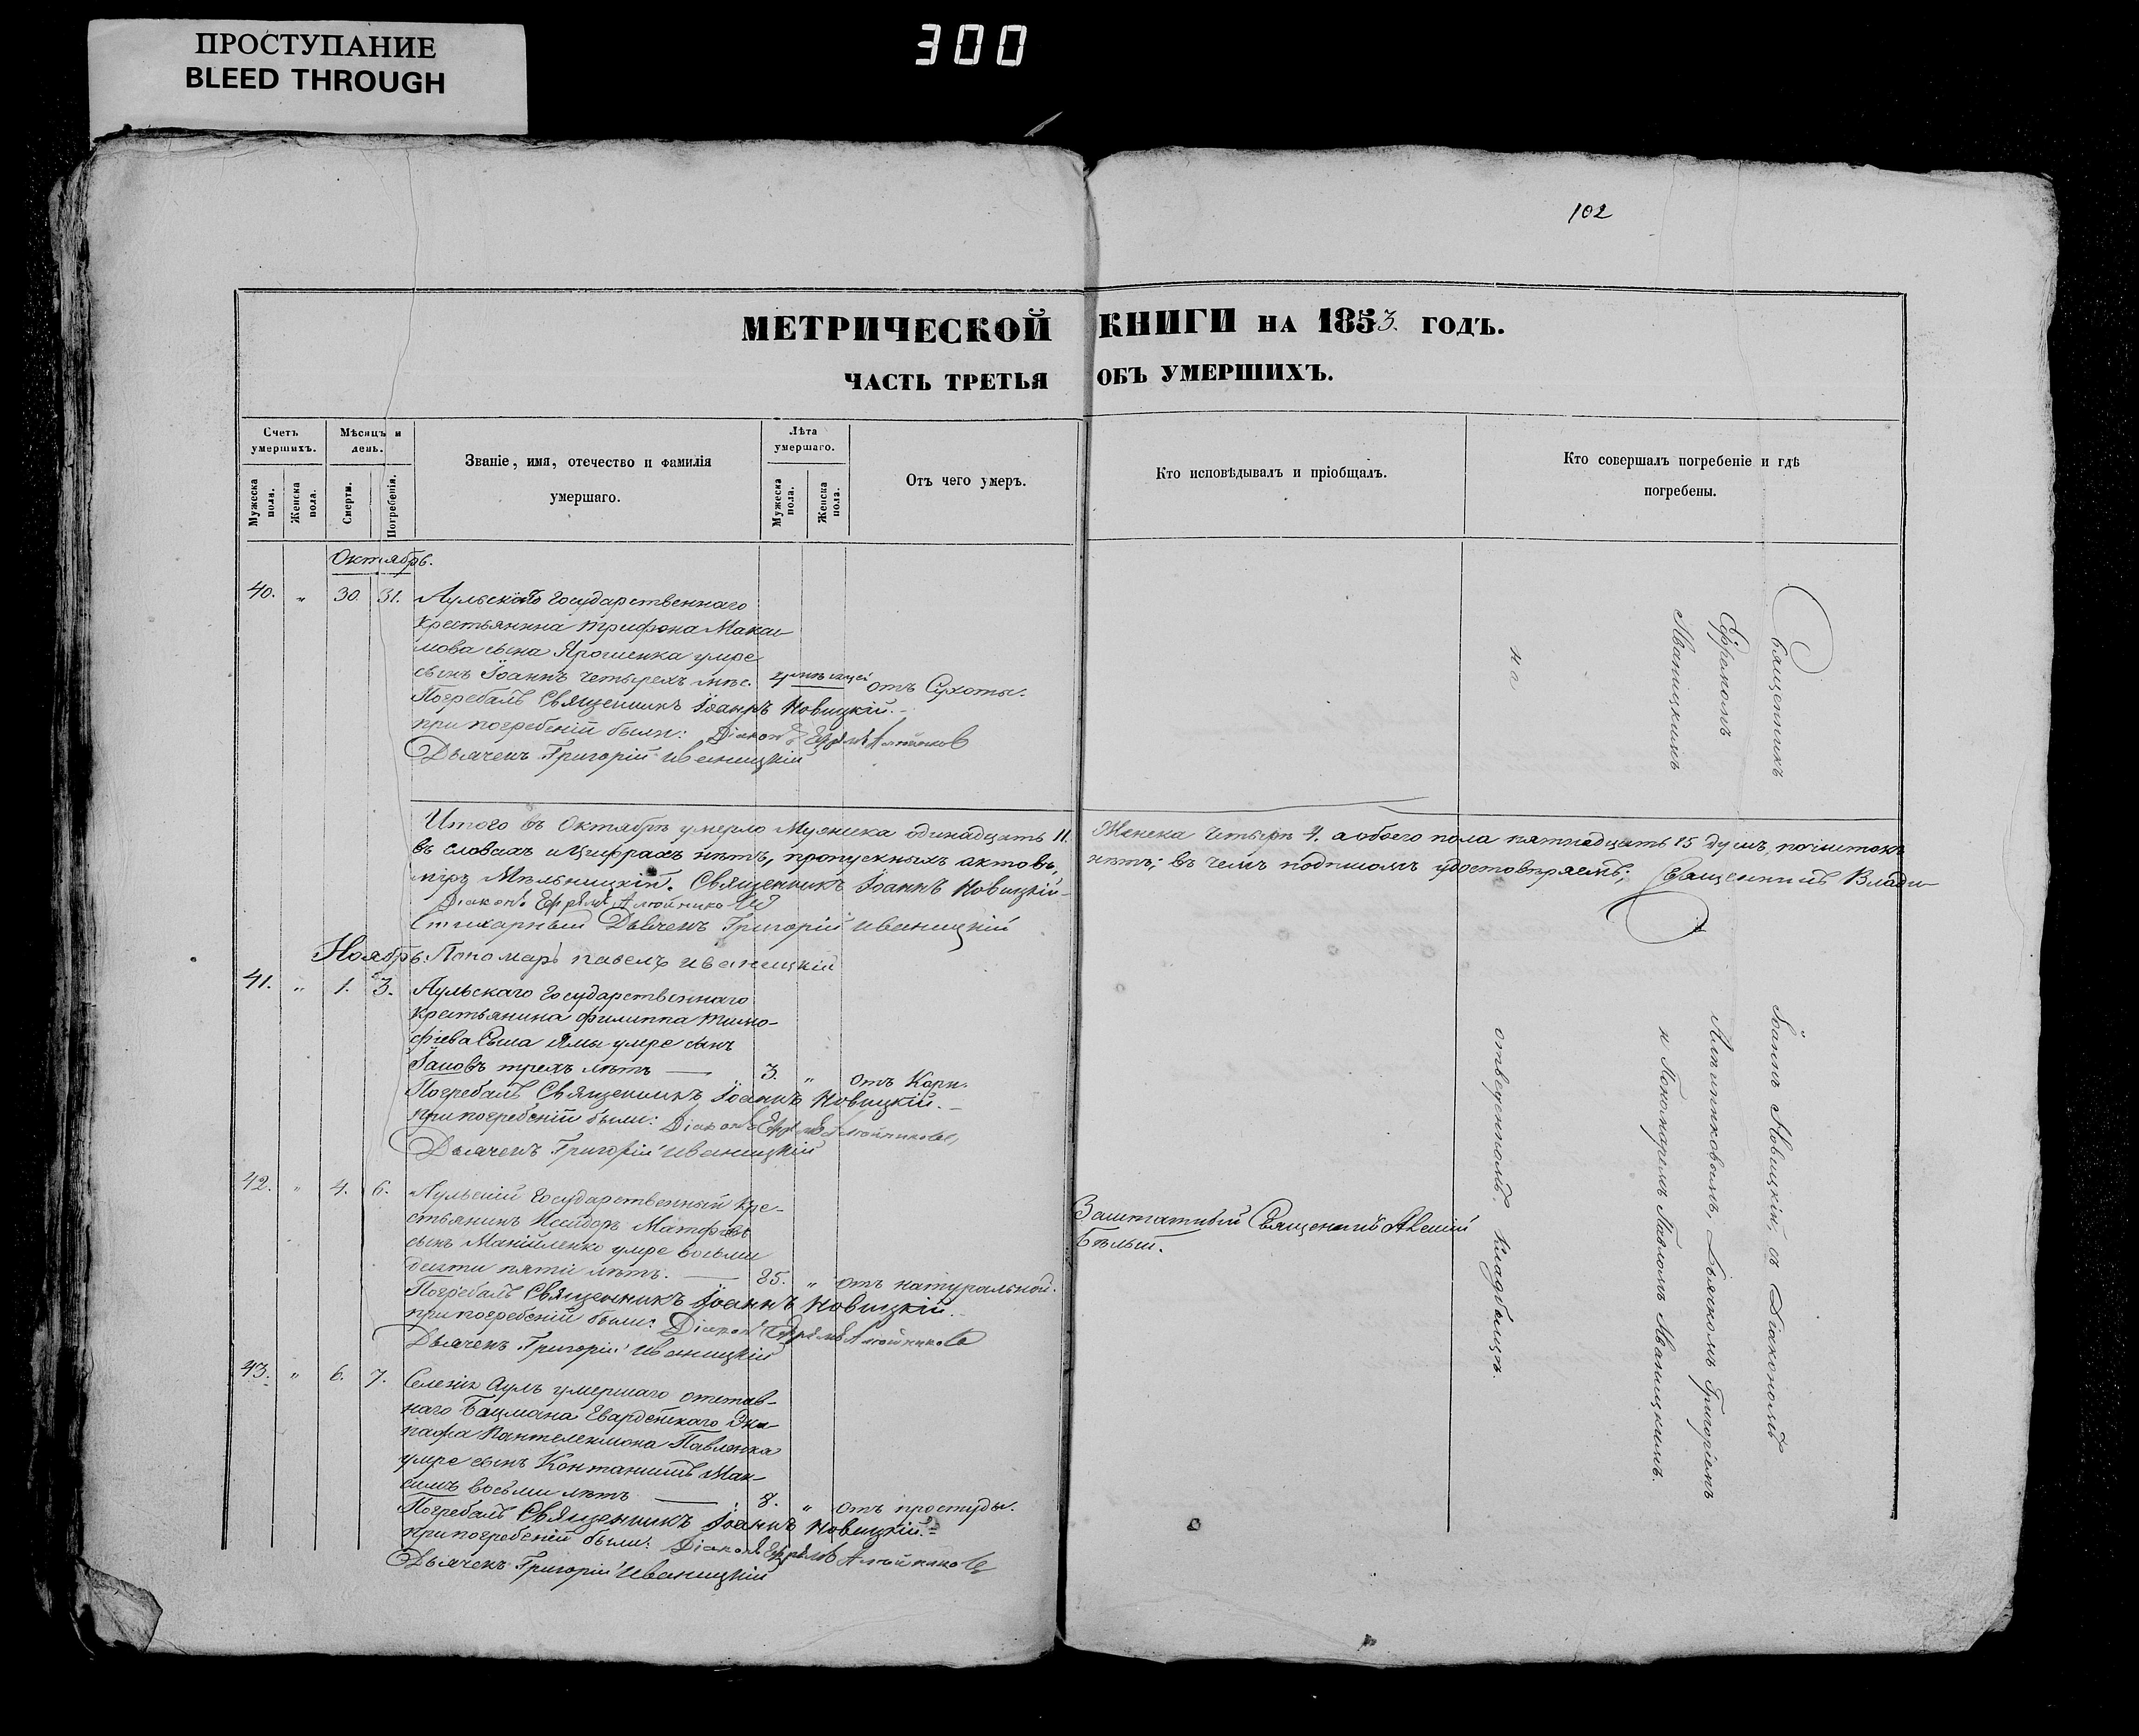 ПРОСТУПАНИЕ
BLEED THROUGH
300
102
МЕТРИЧЕСКОЙ КНИГИ НА 1853. ГОДЪ.
ЧАСТЬ ТРЕТЬЯ ОБЪ УМЕРШИХЪ.
Счетъ умершихъ.
Мужеска пола.
Женска пола.
Мѣсяцъ и день.
Смерти.
Погребенія.
Званіе, имя, отечество и фамилія
умершаго.
Лѣта умершаго.
Мужеска пола.
Женска пола.
Отъ чего умеръ.
Кто исповѣдывалъ и пріобщалъ.
Кто совершалъ погребеніе и гдѣ
погребены.
Октябрь.
40. „ 30. 31. Государственнаго
крестьянина Трифона Макси-
мова сына Ярошенка умре
сынъ Іоаннъ четырехъ мѣс. отъ Сухоты.
Погребалъ Священникъ Іоаннъ Новицкій.
при погребеніи были: Діаконъ
Дьячекъ Григорій Иваницкій
Итого въ Октябрѣ умерло Мужеска одинадцать 11. Женска четыре 4. а обоего пола пятнадцать 15 душъ, почистокъ
въ словахъ и цифрахъ нѣтъ, пропускныхъ актовъ, нѣтъ; въ чемъ подписомъ удостовѣряемъ; Священникъ Влади-
міръ Мѣльницкій. Священникъ Іоаннъ Новицкій
Діаконъ
Стихарный Дьячекъ Григорій Иваницкій
Ноябрь. Пономарь Павелъ Иваницкій
41. „ 1. 3. Аульскаго Государственнаго
крестьянина Филиппа Тимо-
фіева сына Ямы умре сынъ
Іаковъ трехъ лѣтъ — 3. „ отъ Кори.
Погребалъ Священникъ Іоаннъ Новицкій.
при погребеніи были: Діаконъ
Дьячекъ Григорій Иваницкій
42. „ 4. 6. Аульскій Государственный кре-
стьянинъ Исидоръ
сынъ умре восьми
десяти пяти лѣтъ. — 85. „ отъ натуральной.
Заштатный Священникъ
Бѣлый.
Погребалъ Священникъ Іоаннъ Новицкій.
при погребеніи были: Діаконъ
Дьячекъ Григорій Иваницкій
43. „ 6. 7. Селенія Аулъ умершаго отстав-
наго Боцмана Гвардейскаго Эки-
пажа Пантелеимона Павленка
умре сынъ Мак-
симъ восьми лѣтъ — 8. „ отъ простуды.
Погребалъ Священникъ Іоаннъ Новицкій.
при погребеніи были: Діаконъ
Дьячекъ Григорій Иваницкій
Священникъ Іоаннъ Новицкій, съ Діакономъ
Ефремомъ Дьячкомъ Григоріемъ
Иваницкимъ и Пономаремъ Павломъ Иваницкимъ.
на отведенномъ кладбищѣ.